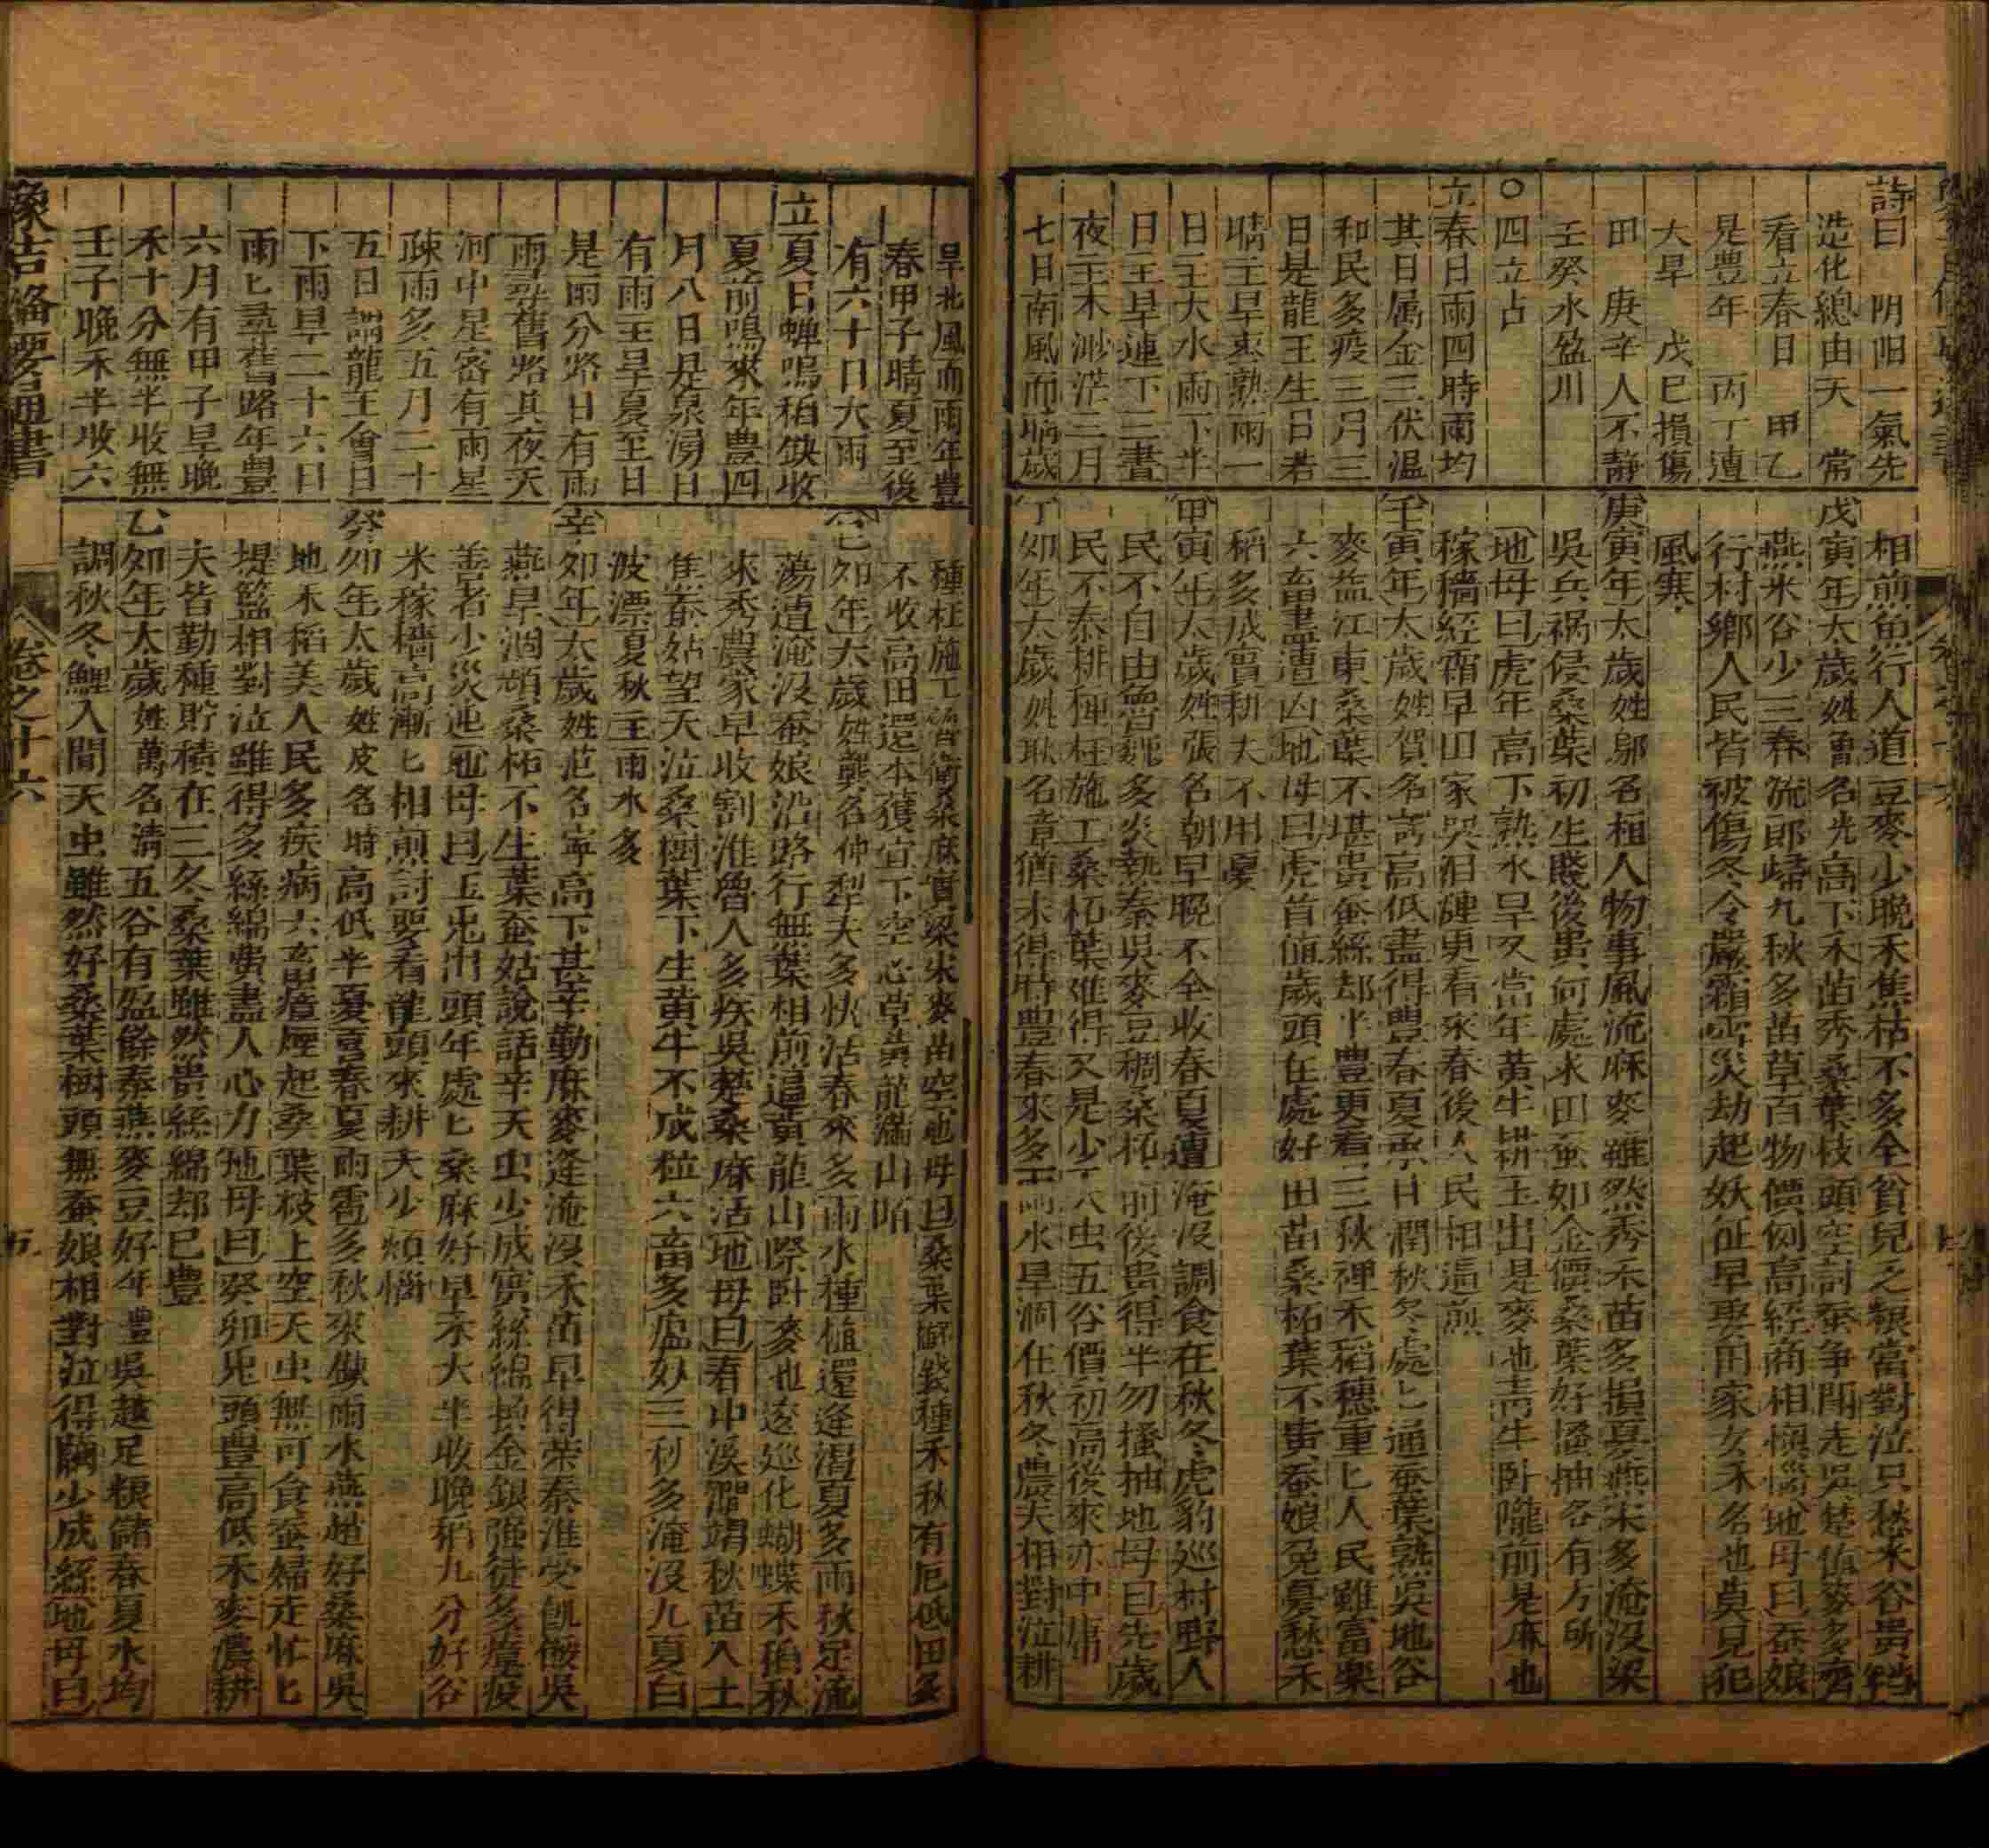 詩曰陰陽一氣先
造化總由天　常
看立春日　甲乙
是豊年　丙丁遭
大旱　戊巳損傷
田　庚辛人不静
壬癸水盈川
○四立占
立春日雨四時雨均
其日属金三伏温
和民多疫三月三
日是龍王生日若
晴主旱棗熟雨一
日主大水雨下半
日主旱連下三晝
夜主木渺茫三月
七日南風而晴歲
相煎魚行人道豆麥少晚禾焦枯不多全貧兒乏粮當對泣只愁米谷貴
戊寅年太歲姓曾名光高下禾苗秀桑葉枝頭空討蚕争閙走吳楚值麥多齊
燕米谷少三春流郎歸九秋多苗草百物價例高經商相懊惱地母曰蚕娘
行村鄉人民皆被傷冬令嚴霜雪災劫起妖征早娶田家女禾名也莫見犯
風寒
庚寅年太歲姓鄔名桓人物事風流麻麥雖然秀禾苗多損憂燕宋多淹没梁
吳兵禍侵桑葉初生賤後貴何處求田蚕如金價桑葉好搔抽各有方所
地母曰虎年高下熟水旱又當年黃牛耕玉出是麥也青牛卧隴前是麻也
稼穡經霜早田家哭泪漣更看來春後人民相逼煎
壬寅年太歲姓賀名諤高低盡得豐春夏重甘潤秋冬處匕通蚕葉熟吳地谷
麥益江東桑葉不堪貴蚕絲却半豐更看三秋裡禾稻穗重匕人民雖富樂
六畜盡遭凶地母曰虎首值歲頭在處好田苗桑柘葉不貴蚕娘免憂愁禾
稻多成實耕夫不用憂
甲寅年太歲姓張名朝早晚不全收春夏遭淹没調食在秋冬虎豹巡村野人
民不自由魯魏多炎熱秦吳麥豆稠桑柘前後貴得半勿搔抽地母曰先歲
民不泰耕種枉施工桑柘葉难得又是少天虫五谷價初高後來亦中庸
丁卯年太歲姓耿名章猶未得時豊春來多雨水旱涸在秋冬農夫相對泣耕
旱北風而雨年豊
春甲子晴夏至後
有六十日大雨
立夏日蟬鳴稻缺收
夏前鳴來年豊四
月八日是泉湧日
有雨主旱夏至日
是雨分路日有雨
雨尋舊路其夜天
河中星密有雨星
疎雨多五月二十
五日謂龍王會日
下雨旱二十六日
雨匕尋舊路年豊
六月有甲子旱晚
禾十分無半收無
壬子晚禾半收六
種枉施工魯衛桑麻實梁宋麥苗空地母曰桑葉觧錢種禾秋有厄低田多
不收高田還本獲宜下空心草黃龍滿山陌
巳卯年太歲姓龔名仲犁夫多快活春來多雨水種植還逢渴夏多雨秋足流
蕩遭淹没蚕娘沿路行無葉相煎逼黃龍山際卧麥也逡巡化蝴蝶禾稻秋
來秀農家早收割淮魯人多疾吳楚桑麻活地母曰春中溪澗竭秋苗入土
焦蚕姑望天泣桑樹葉下生黄牛不成粒六畜多瘟妙三秋多淹没九夏白
波漂夏秋主雨水多
辛卯年太歲姓范名寧高下甚辛勤麻麥逢淹没禾苗早得荣秦淮受飢餒吳
燕旱涸頻桑柘不生葉蚕姑說話辛天虫少成寔絲綿換金銀强徒多瘟疫
善者少災迍地母曰玉兎出頭年處匕桑麻好早禾大半收晚稻九分好谷
米稼穡高漸匕相煎討要看龍頭來耕夫少煩惱
癸卯年太歲姓皮名時高低半憂喜春夏雨雹多秋來缺雨水燕趙好桑麻吳
地禾稻美人民多疾病六畜瘴煙起桑葉枝上空天虫無可食蚕婦走忙匕
堤籃相對泣雖得多絲綿費盡人心力地母曰癸卯兎頭豊高低禾麥濃耕
夫皆勤種貯積在三冬桑葉雖然貴絲綿却巳豊
乙卯年太歲姓萬名清五谷有盈餘秦燕麥豆好年豊吳越足粮儲春夏水均
調秋冬鯉入間天虫雖然好桑葉樹頭無蚕娘相對泣得繭少成絲地母曰
象吉俻要通書
卷之十六